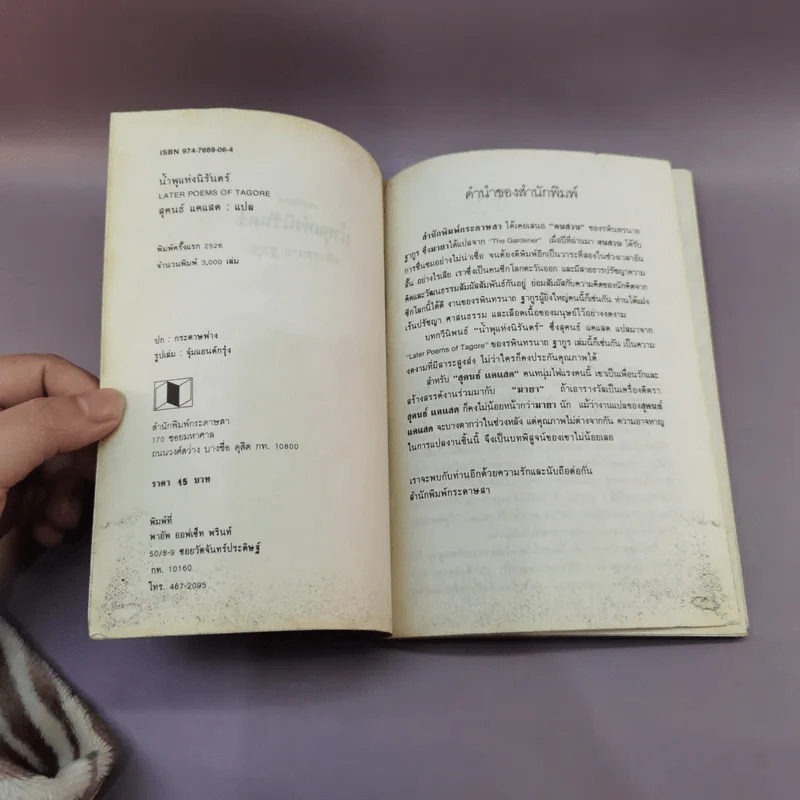 ISBN 974-7669-06-4
น้ำพุแห่งนิรันดร์
LATER POEMS OF TAGORE
สุคนธ์ แคแสด : แปล
พิมพ์ครั้งแรก 2526
จำนวนพิมพ์ 3,000 เล่ม
ปก : กระดาษฟาง
รูปเล่ม : จุ๋มแอนด์กรุ้ง
สำนักพิมพ์กระดาษสา
170 ซอยมหาศาล
ถนนวงศ์สว่าง บางซื่อ ดุสิต กท. 10800
ราคา 15 บาท
พิมพ์ที่
พายัพ ออฟเซ็ท พรินท์
50/8-9 ซอยวัดจันทร์ประดิษฐ์
กท. 10160
โทร. 467-2095
คำนำของสำนักพิมพ์
สำนักพิมพ์กระดาษสา ได้เคยเสนอ "คนสวน" ของรพินทรนาถ
ฐากูร ซึ่งมายาได้แปลจาก "The Gardener" เมื่อปีที่ผ่านมา คนสวน ได้รับ
การชื่นชมอย่างไม่น่าเชื่อ จนต้องตีพิมพ์อีกเป็นวาระที่สองในช่วงเวลาอัน
สั้น อย่างไรเสีย เราซึ่งเป็นคนซีกโลกตะวันออก และมีสายธารปรัชญาความ
คิดและวัฒนธรรมสัมผัสสัมพันธ์กันอยู่ ย่อมสัมผัสกับความคิดของนักคิดจาก
ซีกโลกนี้ได้ดี งานของรพินทรนาถ ฐากูรผู้ยิ่งใหญ่คนนี้ก็เช่นกัน ท่านได้แฝง
เร้นปรัชญา ศาสนธรรม และเลือดเนื้อของมนุษย์ไว้อย่างงดงาม
บทกวีนิพนธ์ "น้ำพุแห่งนิรันดร์" ซึ่งสุคนธ์ แคแสด แปลมาจาก
"Later Poems of Tagore" ของรพินทรนาถ ฐากูร เล่มนี้ก็เช่นกัน เป็นความ
งดงามที่มีสาระสูงส่ง ไม่ว่าใครก็คงประกันคุณภาพได้
สำหรับ "สุคนธ์ แคแสด" คนหนุ่มไฟแรงคนนี้ เขาเป็นเพื่อนรักและ
สร้างสรรค์งานร่วมมากับ "มายา" ถ้าเอารางวัลเป็นเครื่องตีตรา
สุคนธ์ แคแสด ก็คงไม่น้อยหน้ากว่ามายา นัก แม้ว่างานแปลของสุคนธ์
แคแสด จะบางตากว่าในช่วงหลัง แต่คุณภาพไม่ต่างจากกัน ความอาจหาญ
ในการแปลงานชิ้นนี้ จึงเป็นบทพิสูจน์ของเขาไม่น้อยเลย
เราจะพบกับท่านอีกด้วยความรักและนับถือต่อกัน
สำนักพิมพ์กระดาษสา